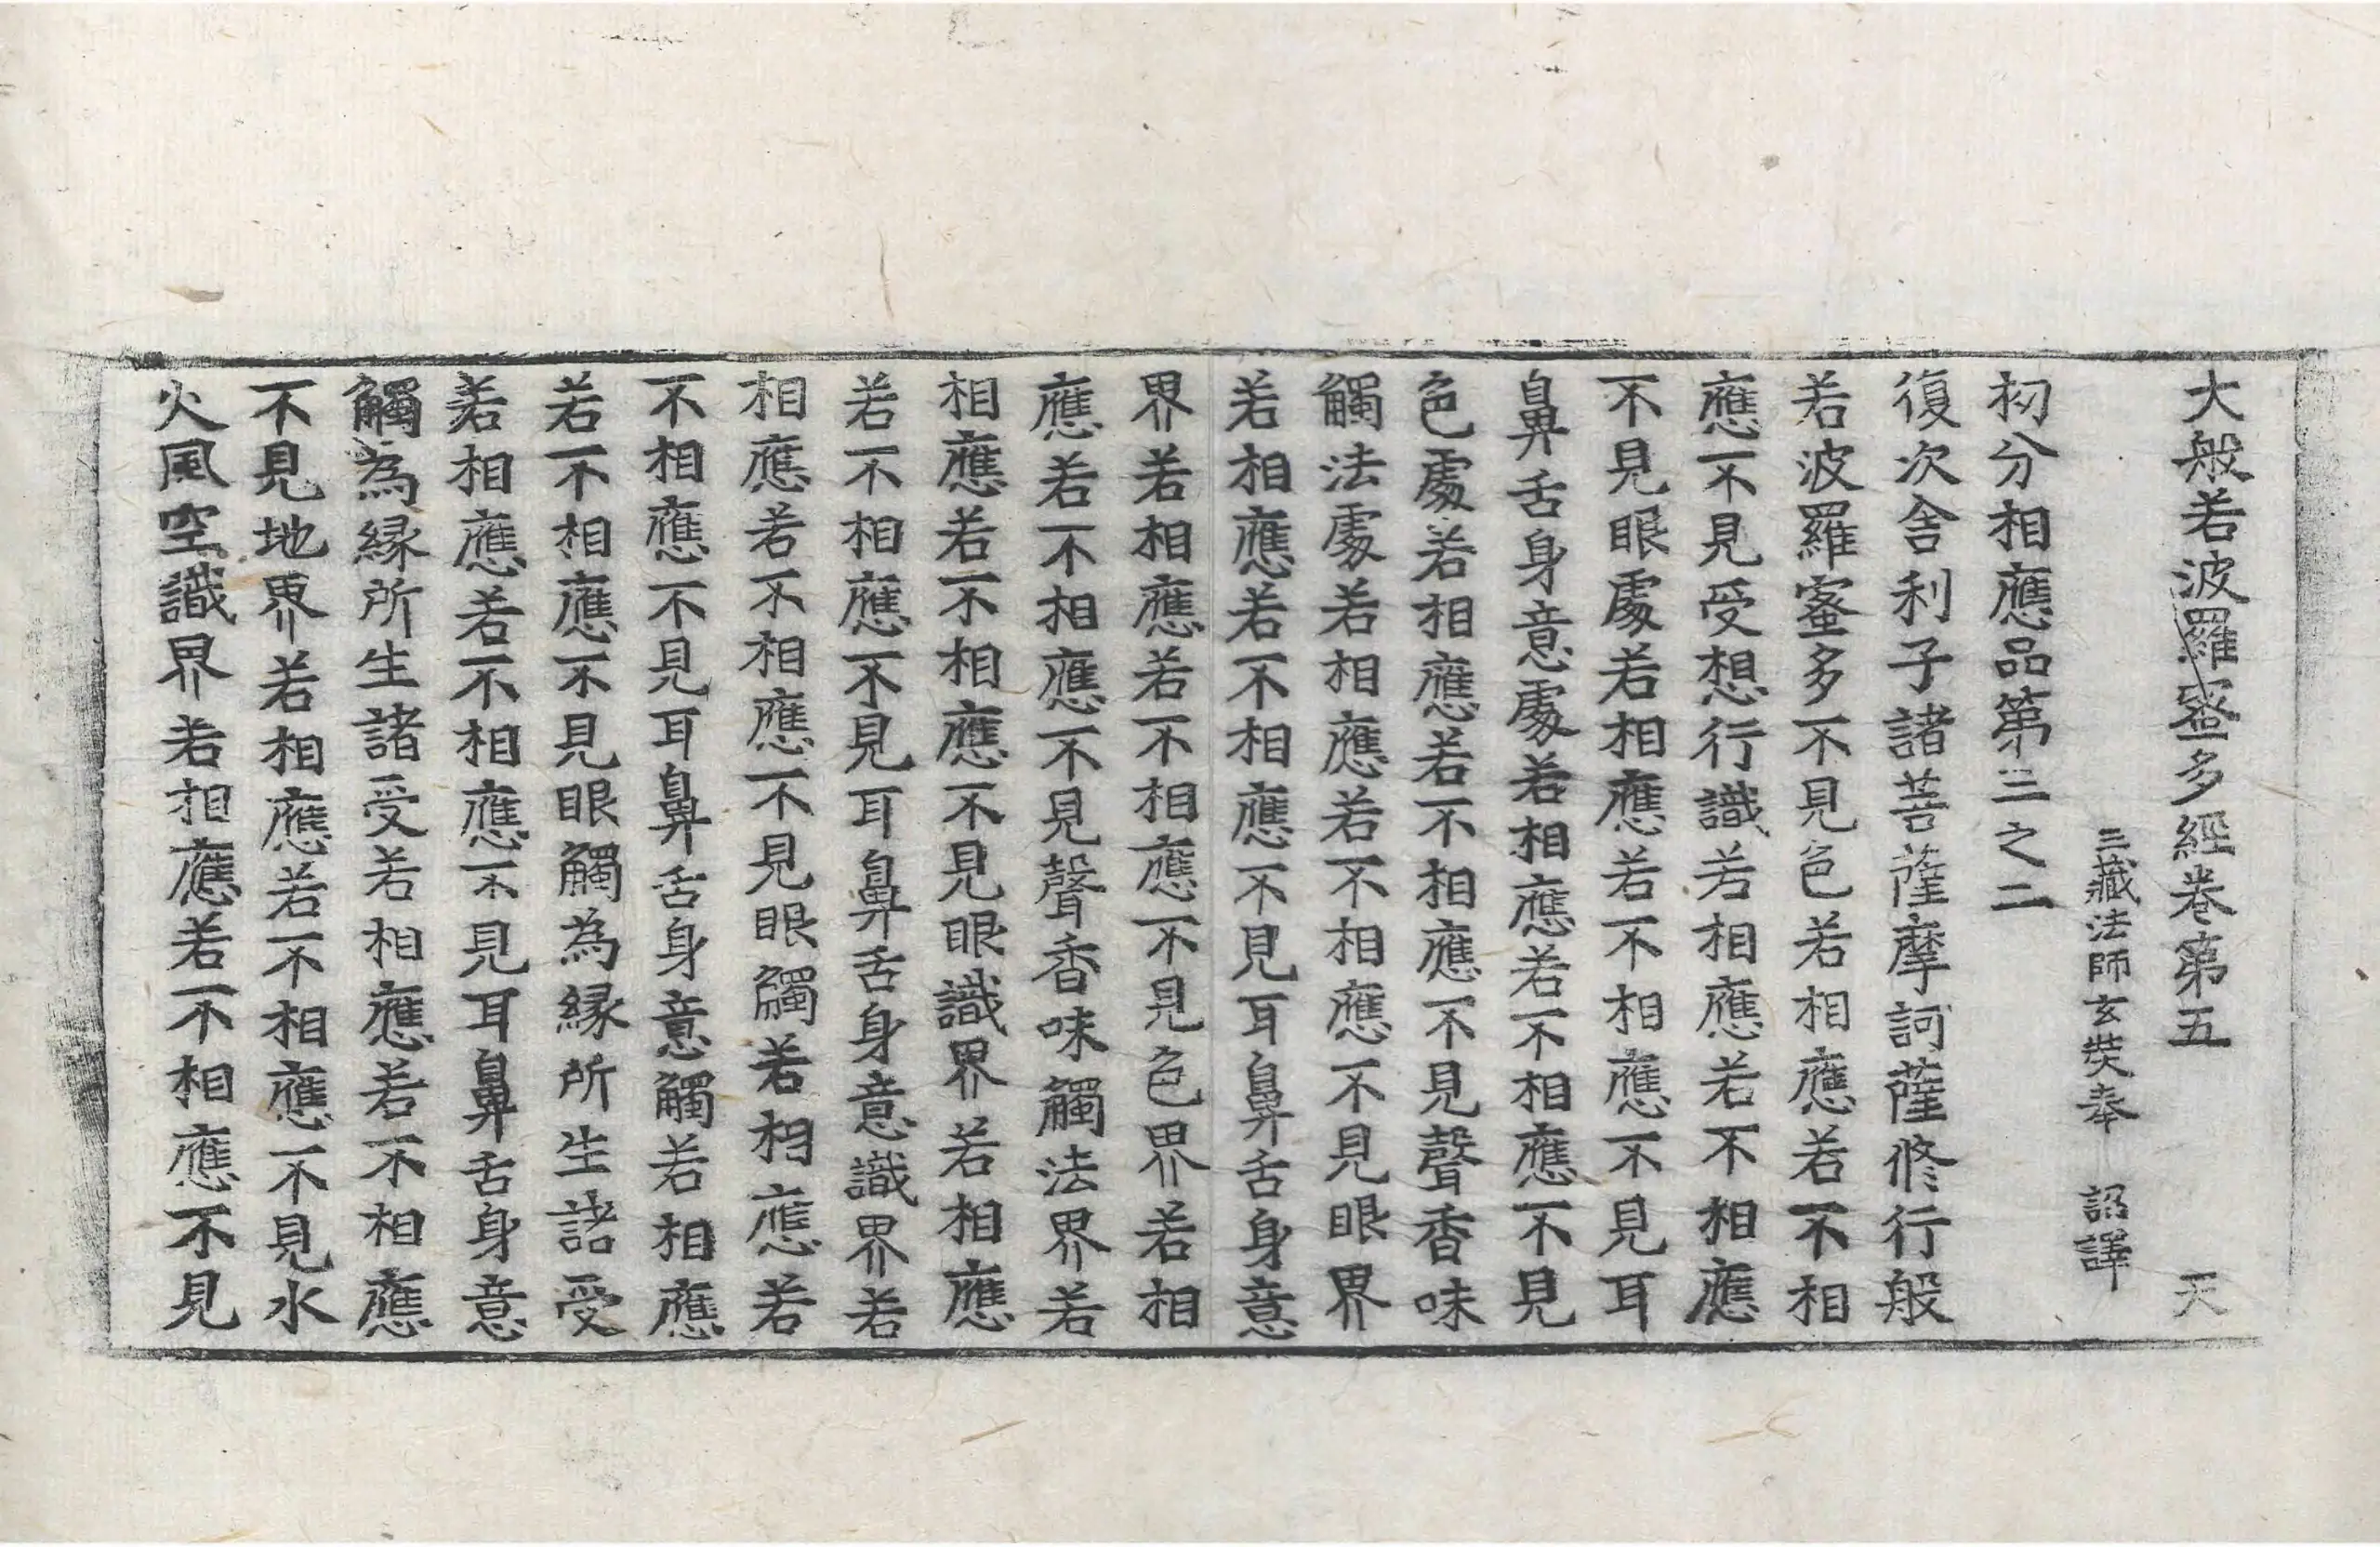 大般若波羅蜜多經卷第五 天
三藏法師玄奘奉 詔譯
初分相應品第三之二
復次舍利子諸菩薩摩訶薩修行般
若波羅蜜多不見色若相應若不相
應不見受想行識若相應若不相應
不見眼處若相應若不相應不見耳
鼻舌身意處若相應若不相應不見
色處若相應若不相應不見聲香味
觸法處若相應若不相應不見眼界
若相應若不相應不見耳鼻舌身意
界若相應若不相應不見色界若相
應若不相應不見聲香味觸法界若
相應若不相應不見眼識界若相應
若不相應不見耳鼻舌身意識界若
相應若不相應不見眼觸若相應若
不相應不見耳鼻舌身意觸若相應
若不相應不見眼觸為緣所生諸受
若相應若不相應不見耳鼻舌身意
觸為緣所生諸受若相應若不相應
不見地界若相應若不相應不見水
火風空識界若相應若不相應不見